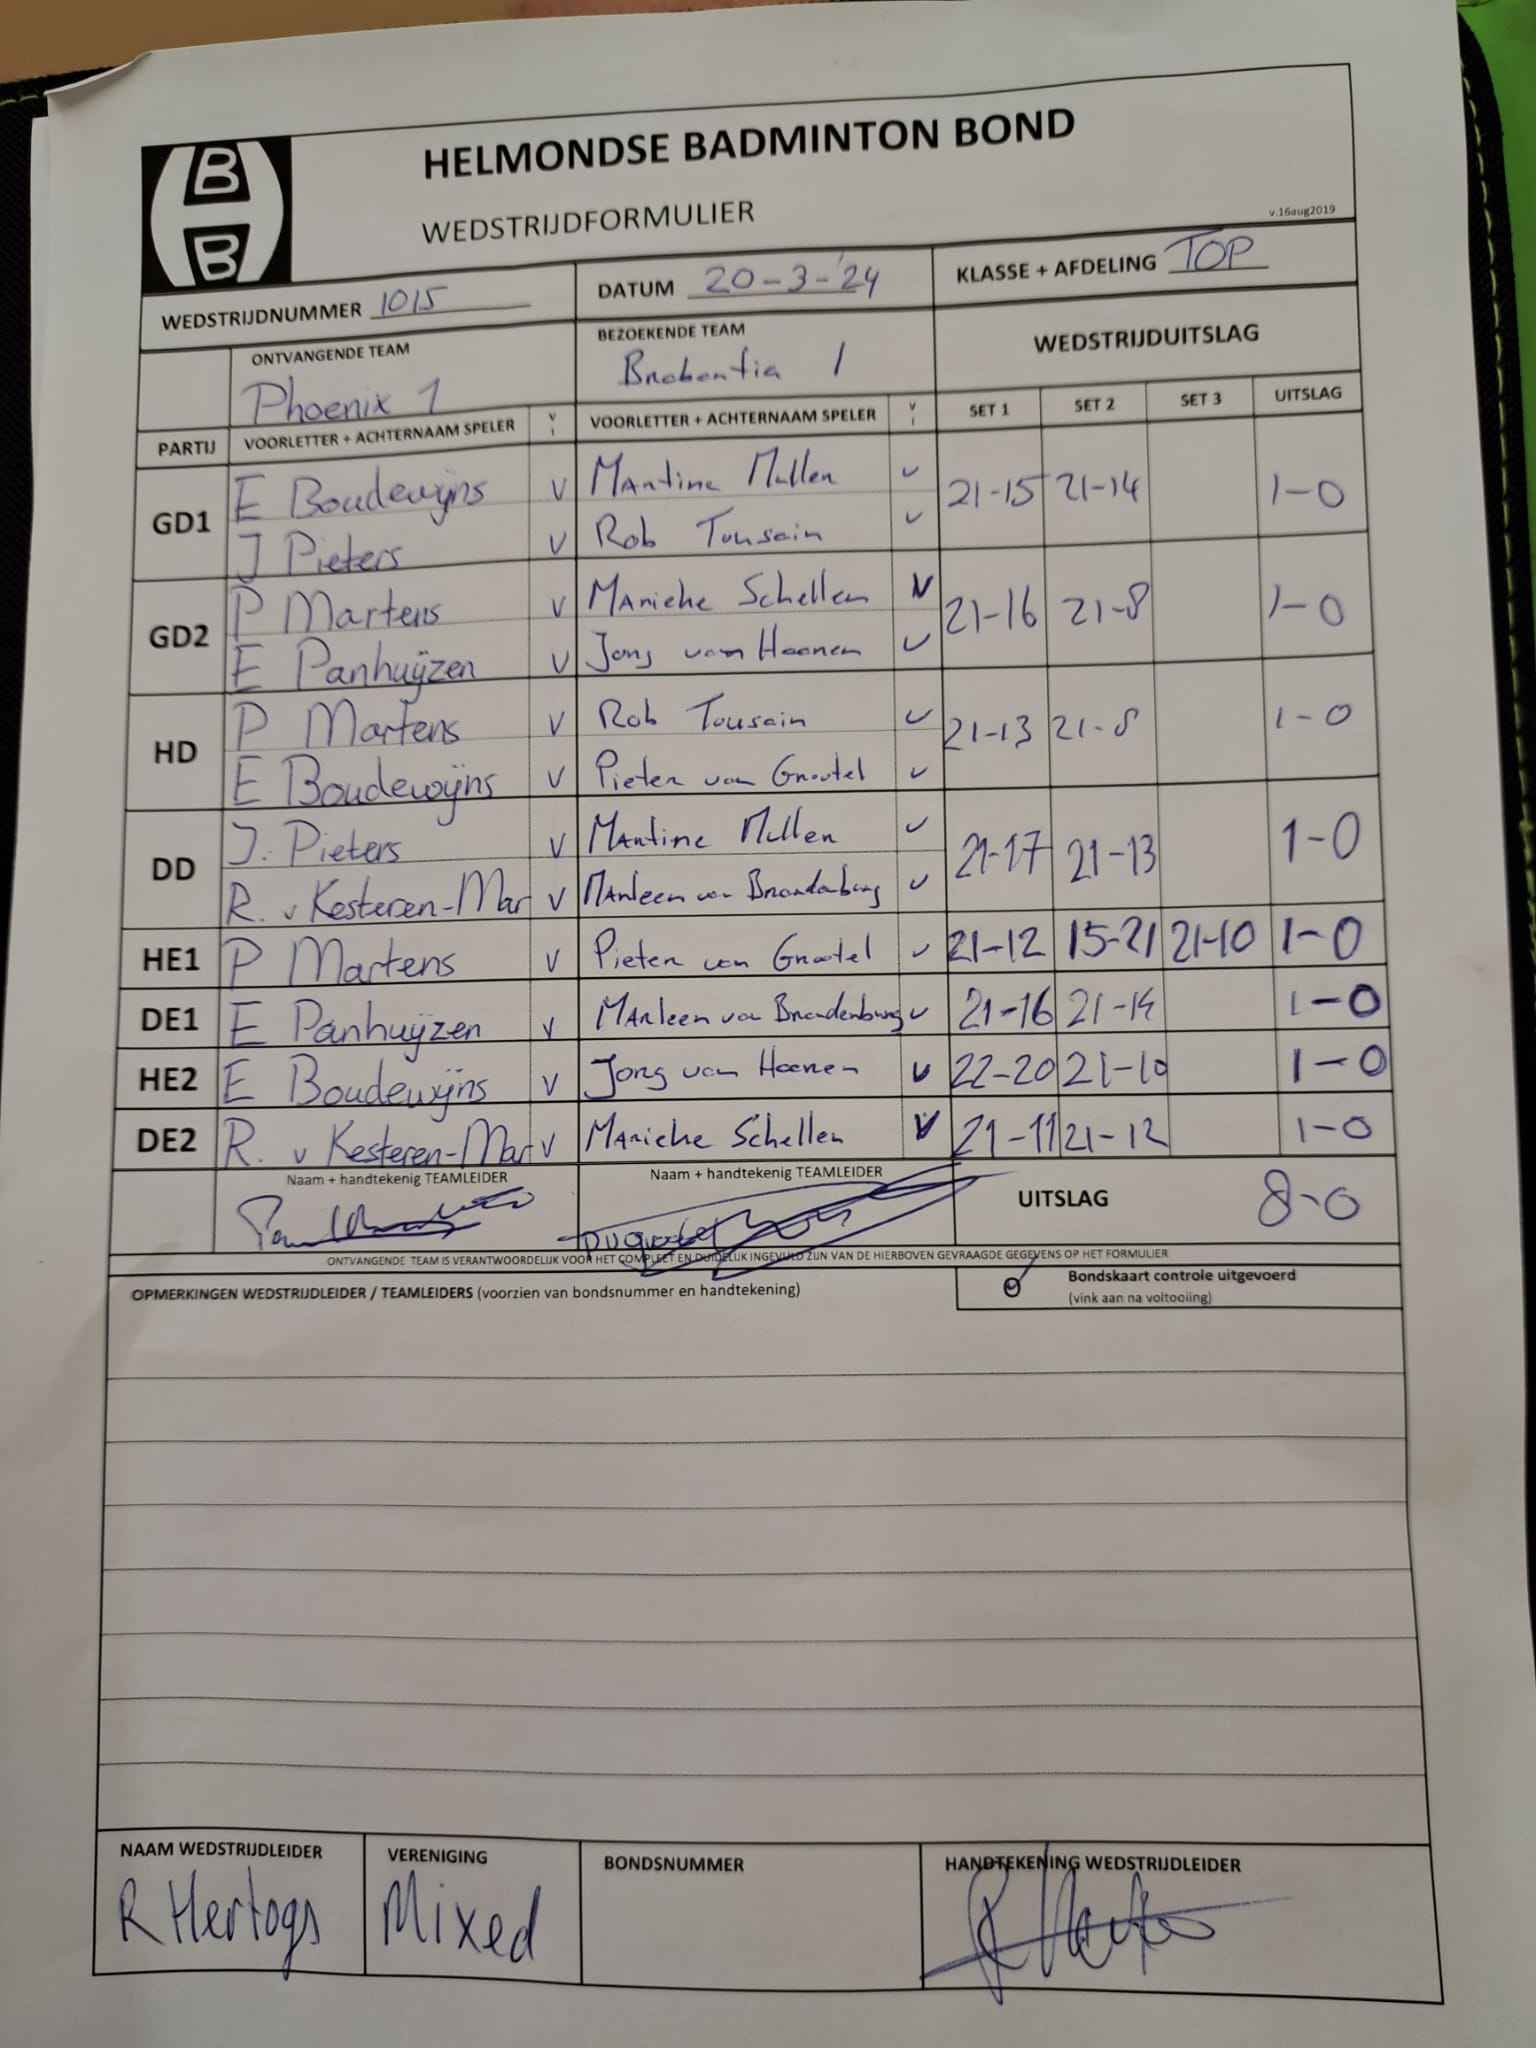 HBB
HELMONDSE BADMINTON BOND
WEDSTRIJDFORMULIER
v.16aug2019
WEDSTRIJDNUMMER 1015 DATUM 20-3-'24 KLASSE + AFDELING TOP
ONTVANGENDE TEAM BEZOEKENDE TEAM WEDSTRIJDUITSLAG
Phoenix 1 Brabantia 1
PARTIJ VOORLETTER + ACHTERNAAM SPELER V I VOORLETTER + ACHTERNAAM SPELER V I SET 1 SET 2 SET 3 UITSLAG
GD1 E Boudewijns V Martine Mullen v 21-15 21-14 1-0
J Pieters V Rob Tousain v
GD2 P Martens V Marieke Schellen V 21-16 21-8 1-0
E Panhuijzen V Jong van Haanen v
HD P Martens V Rob Tousain v 21-13 21-8 1-0
E Boudewijns V Pieter van Grootel v
DD J. Pieters V Martine Mullen v 21-17 21-13 1-0
R. v Kesteren-Mar V Marleen van Brandenburg v
HE1 P Martens V Pieter van Grootel v 21-12 15-21 21-10 1-0
DE1 E Panhuijzen V Marleen van Brandenburg v 21-16 21-14 1-0
HE2 E Boudewijns V Jong van Haanen v 22-20 21-10 1-0
DE2 R. v Kesteren-Mar V Marieke Schellen V 21-11 21-12 1-0
Naam + handtekenig TEAMLEIDER Naam + handtekenig TEAMLEIDER UITSLAG 8-0
ONTVANGENDE TEAM IS VERANTWOORDELIJK VOOR HET COMPLEET EN DUIDELIJK INGEVULD ZIJN VAN DE HIERBOVEN GEVRAAGDE GEGEVENS OP HET FORMULIER
OPMERKINGEN WEDSTRIJDLEIDER / TEAMLEIDERS (voorzien van bondsnummer en handtekening) O Bondskaart controle uitgevoerd
(vink aan na voltooiing)
NAAM WEDSTRIJDLEIDER VERENIGING BONDSNUMMER HANDTEKENING WEDSTRIJDLEIDER
R Hertogs Mixed